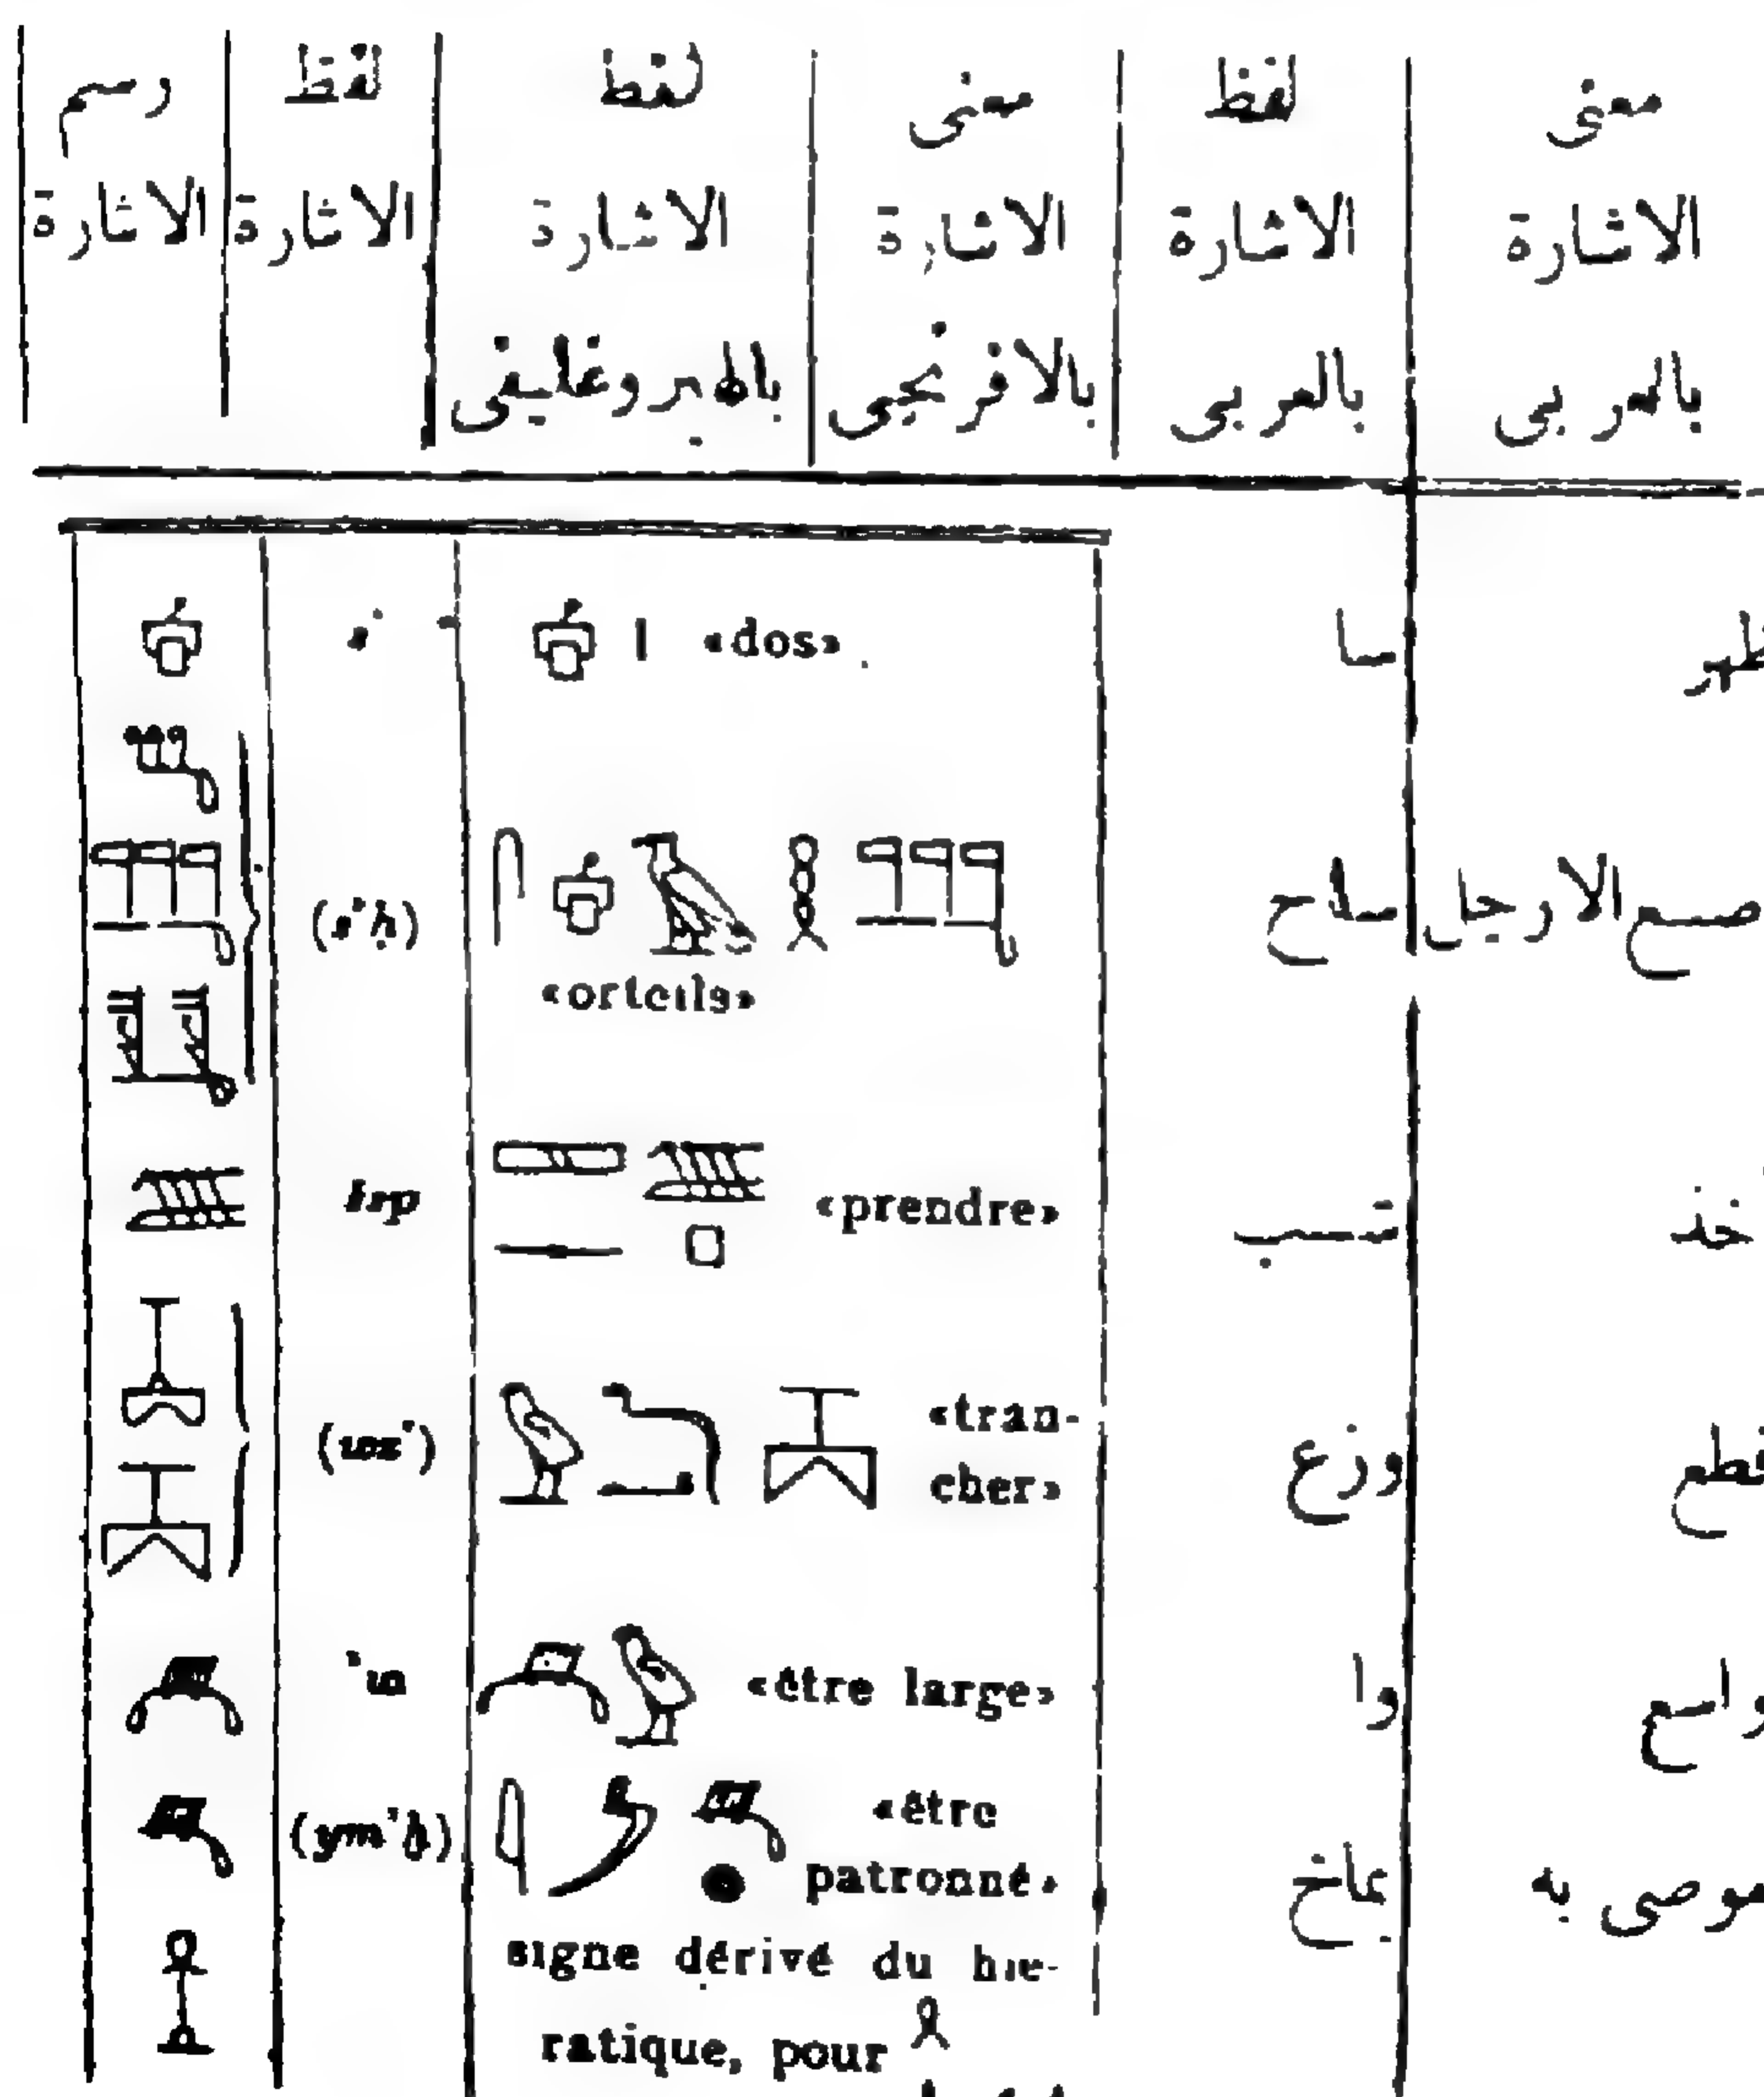 رسم الاشارة
لفظ الاشارة
لفظ الاشارة بالهيروغليفى
معنى الاشارة بالافرنجى
لفظ الاشارة بالعربى
معنى الاشارة بالعربى
«dos» سا
(s'ḥ) «orteils» ساح الارجل
šsp «prendre» شسب خذ
«tran-
cher» وزع قطع
'w «être large» وا واسع
«être
patronné» موصى به
signe dérivé du hié-
ratique, pour